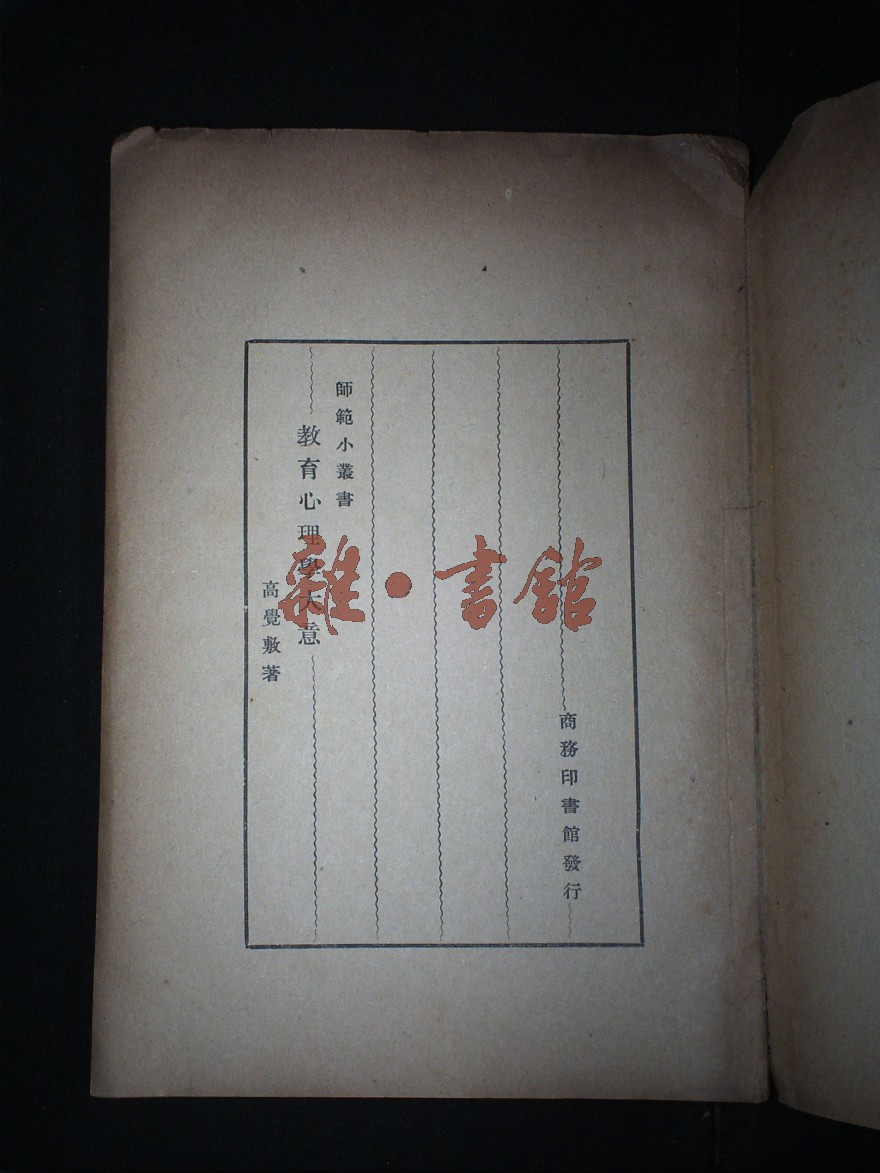 師範小叢書
教育心理學大意
高覺敷著
商務印書館發行
雜·書館